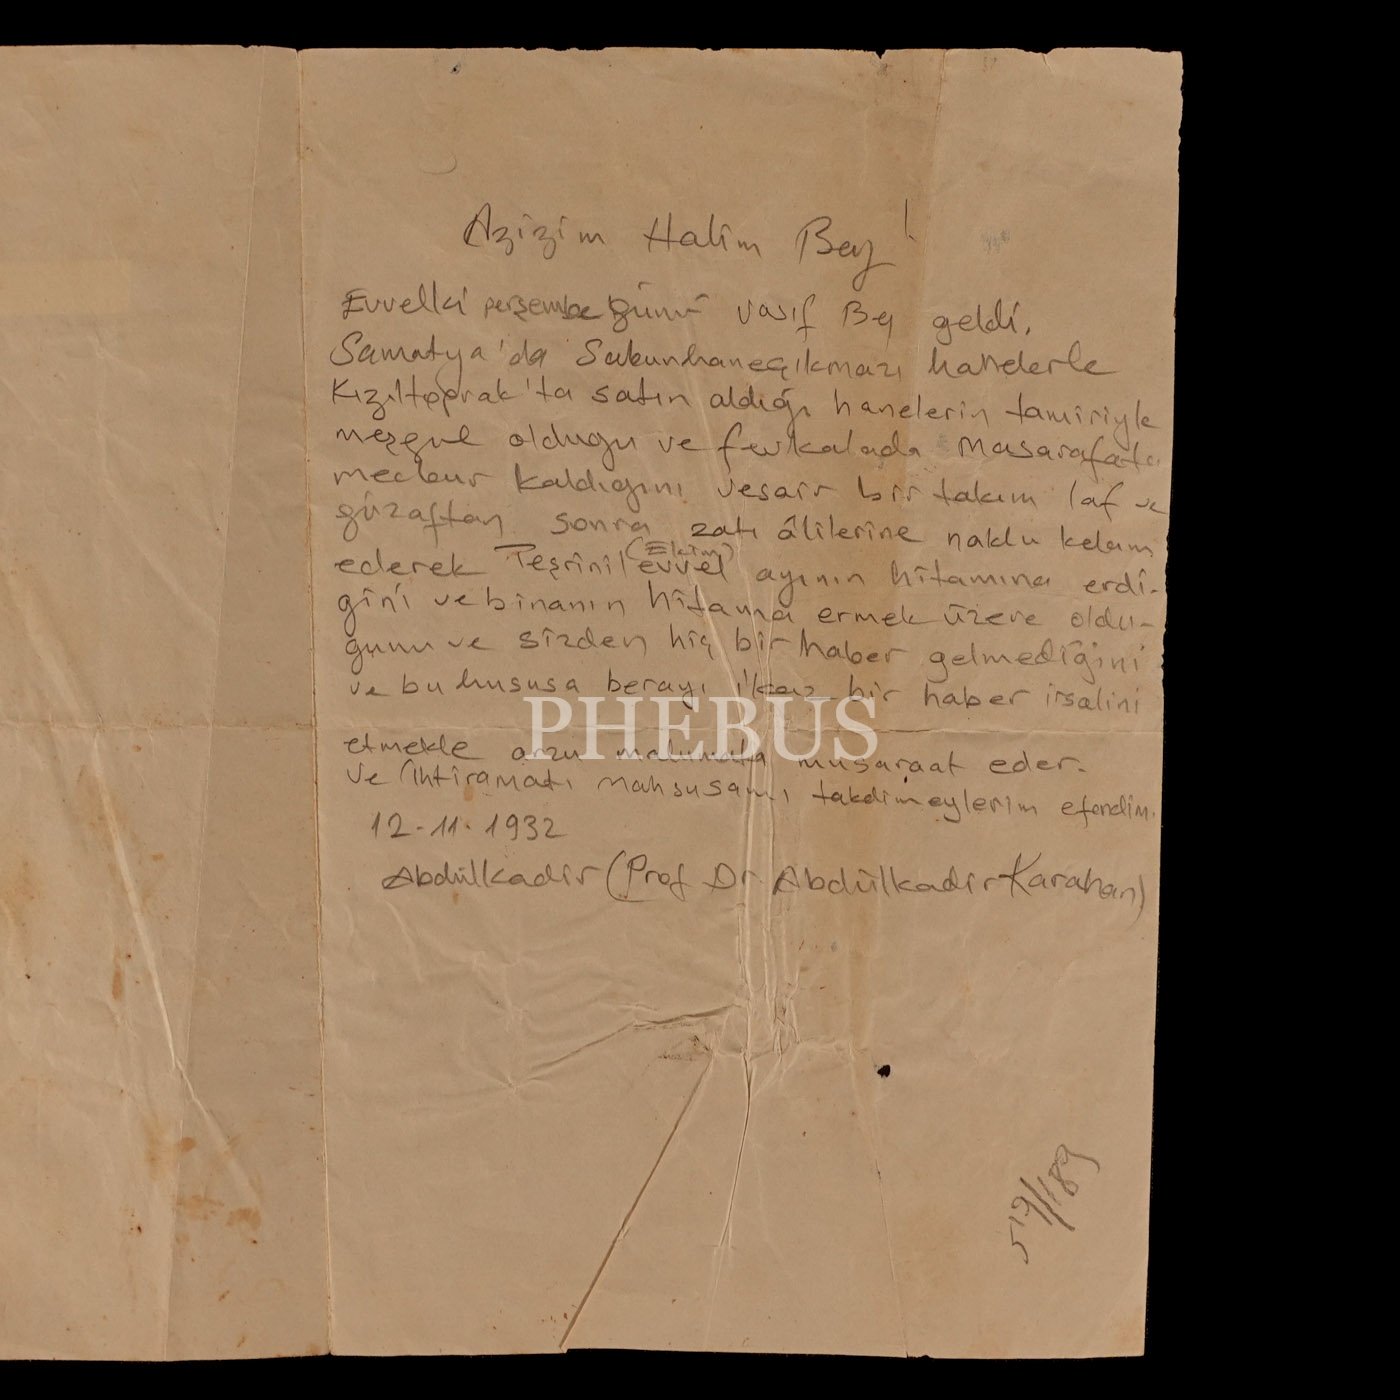 Azizim Halim Bey!
Evvelki perşembe günü vasıf Bey geldi.
Samatya'da Sabunhaneçıkmazı hanelerle
Kızıltoprak'ta satın aldığı hanelerin tamiriyle
meşgul olduğu ve fevkalada masarafata
mecbur kaldığını vesair bir takım laf ve
güzaftan sonra zatı âlilerine naklu kelam
ederek Teşrinilevvel (Ekim) ayının hitamına erdi-
ğini ve binanın hitama ermek üzere oldu-
ğunu ve sizden hiç bir haber gelmediğini
ve bu hususa berayı ikaz bir haber irsalini
etmekle arzu malumata musaraat eder.
ve ihtiramatı mahsusamı takdim eylerim efendim.
12-11-1932
Abdülkadir (Prof Dr Abdülkadir Karahan)
519/189
PHEBUS